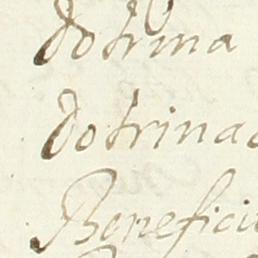 dotrina
dotrinad
Benefici